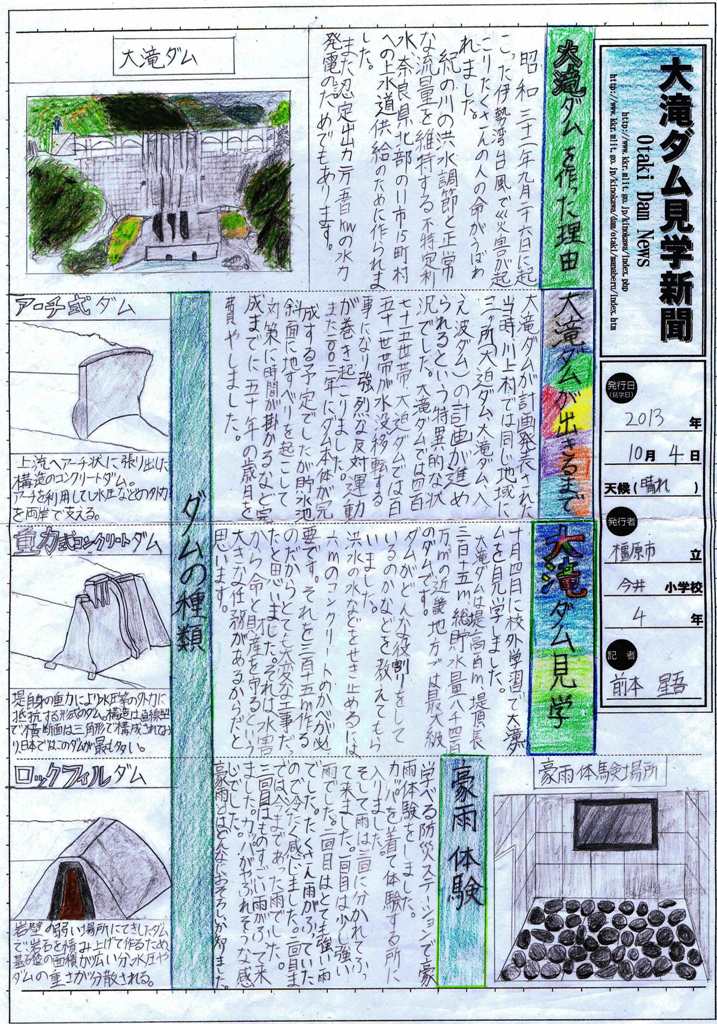 大滝ダム見学新聞
Otaki Dam News
http://www.kkr.mlit.go.jp/kinokawa/index.php
発行日
(見学日)
2013 年
10月 4日
天候(晴れ)
発行者
橿原市 立
今井 小学校
4 年
記者
前本 星吾
大滝ダムを作った理由
昭和三十二年九月二十六日に起
こった伊勢湾台風で災害が起
こりたくさんの人の命がうばわ
れました。
紀の川の洪水調節と正常
な流量を維持する不特定利
水、奈良県北部の11市15町村
への上水道供給のために作られま
した。
また認定出力
kwの水力
発電のためでもあります。
大滝ダム
大滝ダムが出きるまで
大滝ダムが計画発表された
当時、川上村では同じ地域に
三ヶ所(大迫ダム、大滝ダム、入
え波ダム)の計画が進め
られるという特異的な状
況でした。大滝ダムでは四百
七十五世帯、大迫ダムでは百
五十一世帯が水没移転する
事になり強烈な反対運動
が巻き起こりました。
また二〇〇二年にダム本体が完
成する予定でしたが貯水池
斜面に地すべりを起こして
対策に時間が掛かるなど完
成までに五十年の歳月を
費やしました。
大滝ダム見学
十月四日に校外学習で大滝ダ
ムを見学しました。
大滝ダムは堤高百m、堤頂長
三百十五m、総貯水量八千四百
万㎥の近畿地方では最大級
のダムです。
ダムがどんな役割りをして
いるのかなどを教えてもら
いました。
洪水の水などをせき止めるには
六mのコンクリートのかべが必
要です。それを三百十五m作る
のだからとても大変な工事だっ
たと思いました。それは水害
から命と財産を守るという
大きな任務があるからだと
思います。
豪雨体験
学べる防災ステーションで豪
雨体験をしました。
カッパを着て体験する所に
入りました。
そして雨は三回に分かれてふっ
て来ました。一回目は少し強い
雨でした。二回目はとても強い雨
でした。たくさん雨がふっていた
ので冷たく感じました。二回目ま
では今まであった雨でした。
三回目はものすごい雨がふって来
ました。カッパがやぶれそうな感
じでした。
豪雨とはどんなにおそろしいか知りました。
豪雨体験場所
ダムの種類
アーチ式ダム
上流へアーチ状に張り出した
構造のコンクリートダム。
アーチを利用して水圧などの外力
を両岸で支える。
重力式コンクリートダム
堤自身の重力により水圧等の外力に
抵抗する形式のダム。構造は直線型
で横断面は三角形で構成されてお
り日本ではこのダムが最も多い。
ロックフィルダム
岩壁の弱い場所にてきしたダム
で岩石を積み上げて作るため、
基そ位の面積が広い分、水圧や
ダムの重さが分散される。